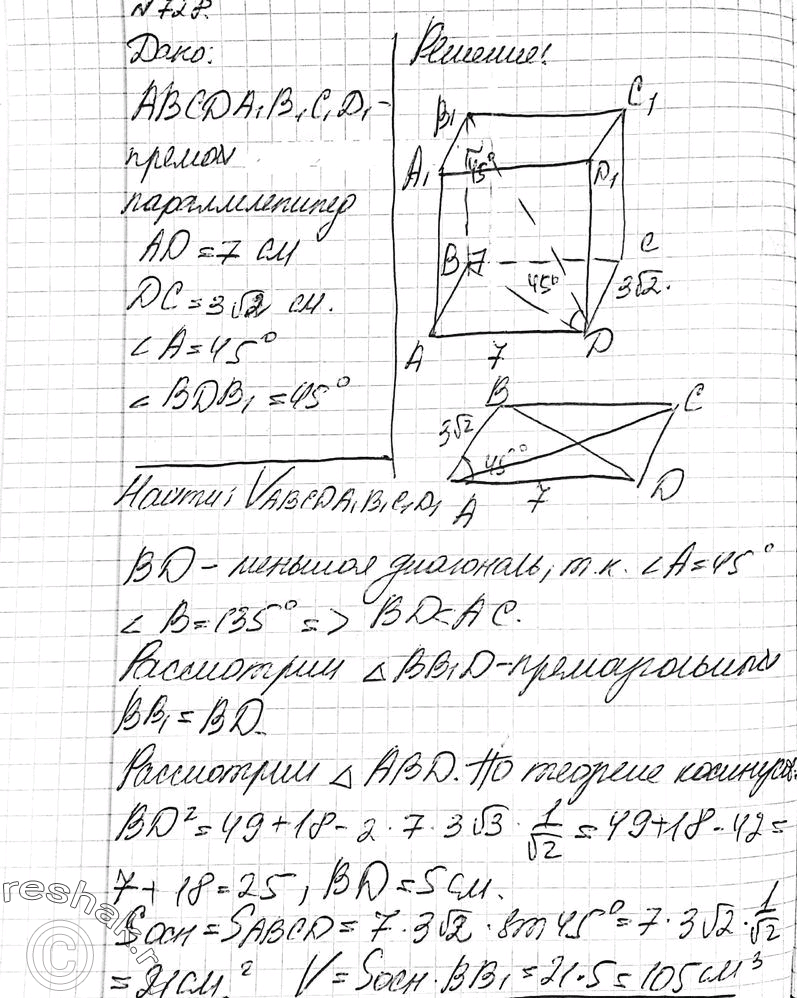 N 728.
Дано:
Решение:
ABCDA₁B₁C₁D₁ -
прямой
параллелепипед
AD = 7 см
DC = 3√2 см.
∠A = 45°
∠BDB₁ = 45°
B₁
C₁
A₁
45°
D₁
B
C
45°
3√2.
A
7
D
B
C
3√2
45°
A
7
D
Найти: VABCDA₁B₁C₁D₁
BD - меньшая диагональ, т.к. ∠A = 45°
∠B = 135° => BD < AC.
Рассмотрим △ BB₁D - прямоугольный
BB₁ = BD.
Рассмотрим △ ABD. По теореме косинусов:
BD² = 49 + 18 - 2 · 7 · 3√3 · 1/√2 = 49 + 18 - 42 =
7 + 18 = 25, BD = 5 см.
Sосн = SABCD = 7 · 3√2 · sin 45° = 7 · 3√2 · 1/√2
= 21 см.² V = Sосн · BB₁ = 21 · 5 = 105 см³
reshak.ru
©